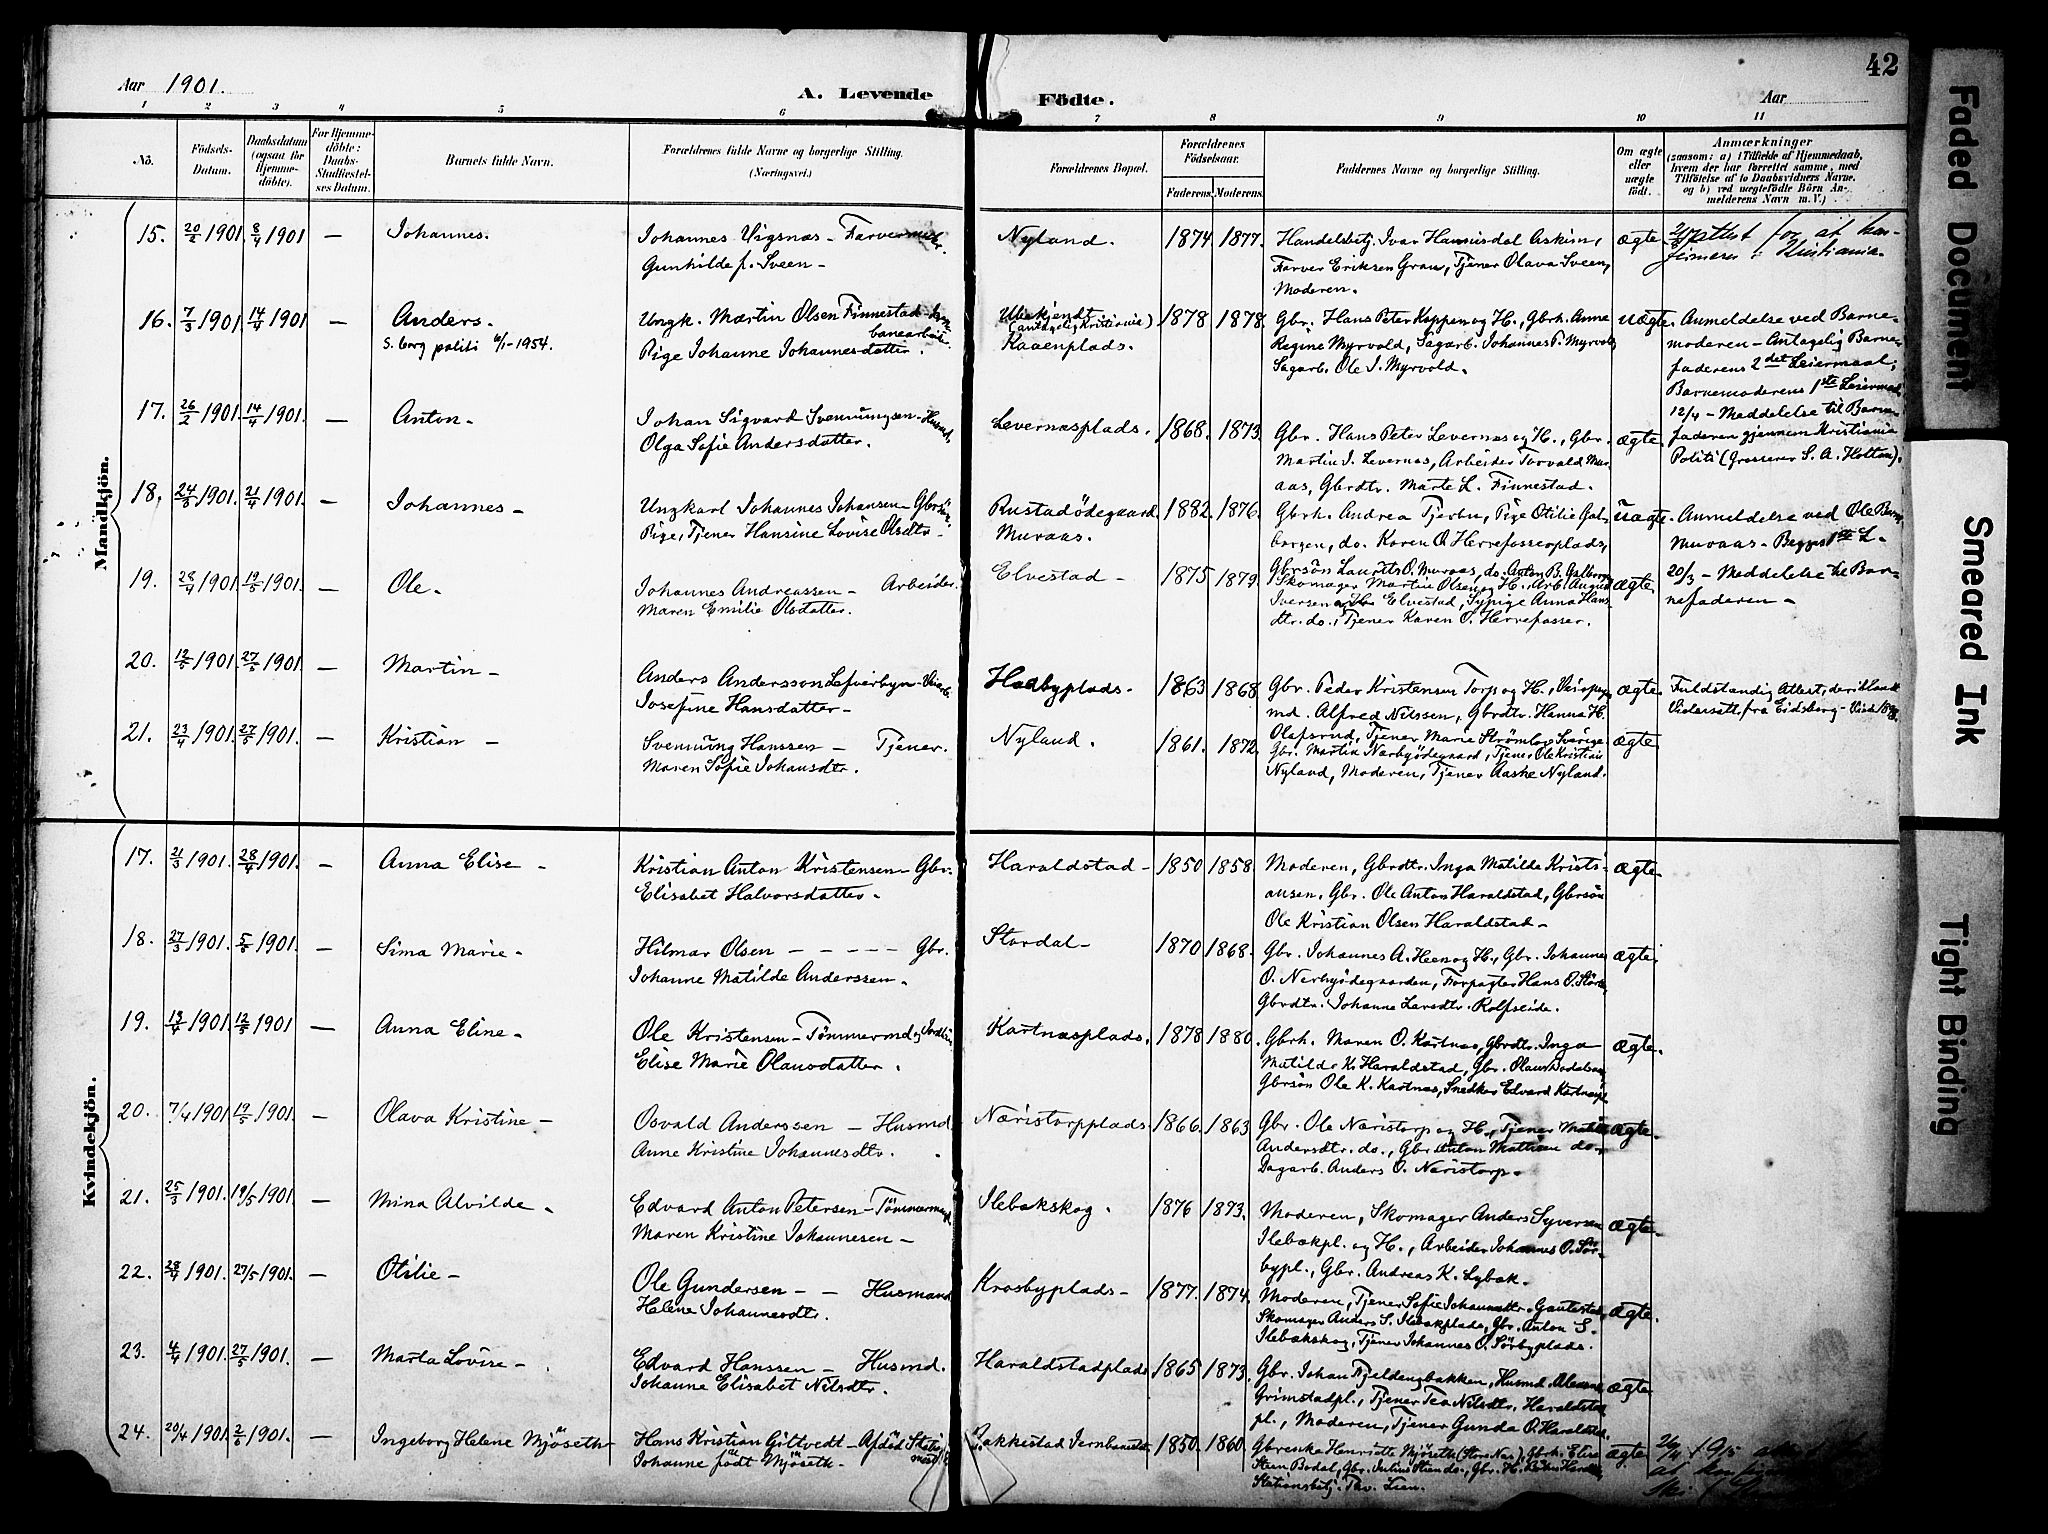 42
Aar 1901. A. Levende Födte. Aar
1 2 3 4 5 6 7 8 9 10 11
No. Födsels-Datum. Daabsdatum (ogsaa for Hjemme-döbte). For Hjemme-döbte: Daabs-Stadfæstel-ses Datum. Barnets fulde Navn. Forældrenes fulde Navne og borgerlige Stilling. (Næringsvei.) Forældrenes Bopæl. Forældrenes Födselsaar. Faderens. Moderens. Faddernes Navne og borgerlige Stilling. Om ægte eller uægte födt. Anmærkninger
(saasom: a) i Tilfælde af Hjemmedaab, hvem der har forrettet samme, med Tilföielse af to Daabsvidners Navne, og b) ved uægtefödte Börn An-melderens Navn m. V.)
Mandkjön.
15. 20/2 1901. 8/4 1901 — Johannes. Johannes Vigsnæs - Nyland. 1874. 1877. Handelsbetj. Ivar Hannisdal Askim, ægte
Gunhilde f. Sveen - Farver Eriksen Grav, Tjener Olava Sveen,
Moderen.
16. 7/3 1901 14/4 1901 — Anders. Ungk. Martin Olsen Finnestad - Ubekjendt 1878 1878. Gbr. Hans Peter Koppen og H., Gbrk. Anne uægte. Anmeldelse ved Barne-
S. borg politi 6/1-1954. banearbeider (antagelig Kristiania) Regine Myrvold, Sagarb. Johannes P. Myrvold moderen - Antagelig Barne-
Pige Johanne Johannesdatter. Kaaenplads. Sagarb. Ole J. Myrvold. faderens 2det Leiermaal;
Barnemoderens 1ste Leiermaal
17. 26/2 1901. 14/4 1901. — Anton. Johan Sigvard Svennungsen - Husmd. Levernæsplads. 1868. 1873. Gbr. Hans Peter Levernæs og H., Gbr. ægte. 12/4 - Meddelelse til Barne-
Olga Sofie Andersdatter. Martin J. Levernæs, Arbeider Torvald Mur- faderen gjennem Kristiania
aas, Gbrdtr. Marte L. Finnestad. Politi (Grosserer S. A. Holton).
18. 24/3 1901. 21/4 1901. — Johannes - Ungkarl Johannes Johansen - Gbrsön Rustadödegaard. 1882. 1876. Gbrk. Andrea Tjerbu, Pige Otilie Gal- uægte. Anmeldelse ved Ole
Pige, Tjener Hansine Lovise Olsdtr. - Muraas. borgen, do. Karen O. Herrefosserplads, Muraas - Begges 1ste L -
Gbrsön Laurits O. Muraas, do. Anton B. Galborgen
19. 28/4 1901. 19/5 1901. — Ole - Johannes Andreassen - Arbeider. Elvestad - 1875 1879. Skomager Martin Olsen og H. Arb. August ægte. 20/3 - Meddelelse til Bar-
Maren Emilie Olsdatter. Iversen og H. Elvestad, Sypige Anna Hans- nefaderen -
dtr. do., Tjener Karen O. Herrefosser.
20. 12/5 1901. 27/5 1901. — Martin - Anders Andersson Lefverbyn - Haabyplads. 1863 1868. Gbr. Peder Kristensen Torp og H., ægte. Fuldstændig Attest,
Josefine Hansdatter - md. Alfred Nilssen, Gbrdtr. Hanna H.
Olafsrud, Tjener Marie Strömlag Sverige.
21. 23/4 1901. 27/5 1901. — Kristian - Svennung Hanssen - Tjener. Nyland. 1861. 1872. Gbr. Martin Nærbyödegaard, Tjener Ole Kristian ægte.
Maren Sofie Johansdtr. Nyland, Moderen, Tjener Aaske Nyland.
Kvindekjön.
17. 21/3 1901. 28/4 1901. — Anna Elise - Kristian Anton Kristensen - Gbr. Haraldstad - 1850 1858. Moderen, Gbrdtr. Inga Matilde Kristi- ægte.
Elisabet Halvorsdatter - ansen, Gbr. Ole Anton Haraldstad, Gbrsön
Ole Kristian Olsen Haraldstad -
18. 27/3 1901. 5/5 1901. — Sima Marie - Hilmar Olsen - - - - - Gbr. Stordal - 1870 1868. Gbr. Johannes A. Heen og H., Gbr. Johannes ægte.
Johanne Matilde Anderssen. O. Nærbyödegaarden, Forpagter Hans O.
Gbrdtr. Johanne Larsdtr. Rolfseide.
19. 13/4 1901. 12/5 1901 — Anna Eline - Ole Kristensen - Tömmermd. Kartnæsplads. 1878 1880. Gbrk. Maren O. Kartnæs, Gbrdtr. Inga ægte.
Elise Marie Olausdatter. Matilde K. Haraldstad, Gbr. Olaus
Gbrsön Ole K. Kartnæs, Snedker Edvard Kartnæspl.
20. 7/4 1901 19/5 1901. — Olava Kristine - Osvald Anderssen - Husmd. Næristorpplads 1866. 1863 Gbr. Ole Næristorp og H., Tjener ægte.
Anne Kristine Johannesdtr. Andersdtr. do., Gbr. Anton Mathisen do.,
Dagarb. Anders O. Næristorp.
21. 25/3 1901. 19/5 1901. — Mina Alvilde - Edvard Anton Petersen - Tömmermand Ilebækskog. 1876 1873. Moderen, Skomager Anders Syversen ægte.
Maren Kristine Johannesen - Ilebækpl. og H., Arbeider Johannes O. Sör-
bypl., Gbr. Andreas K. Lybæk.
22. 28/4 1901. 27/5 1901. — Otilie - Ole Gundersen - - Husmand Krosbyplads - 1877. 1874. Moderen, Tjener Sofie Johannesdtr. ægte.
Helene Johannesdtr. Skomager Anders S. Ilebækplads, Gbr. Anton S.
Ilebækskog, Tjener Johannes O. Sörbyplads.
23. 4/4 1901. 27/5 1901. — Marta Lovise - Edvard Hanssen - Husmd. Haraldstadplads 1865 1873. Gbr. Johan Fjeldengbakken, Husmd. ægte
Johanne Elisabet Nilsdtr. Grimstadpl., Tjener Tea Nilsdtr. Haraldstad
pl., Moderen, Tjener Gunda O. Haraldstad.
24. 20/4 1901. 2/6 1901. — Ingeborg Helene Mjöseth Hans Kristian Gittvedt - Afdöd Stationsmest. Rakkestad Jernbanestat. 1850. 1860. Gbrenke Henriette Mjöseth (Store Næs), Gbrk. Elise ægte
Johanne födt Mjöseth. Steen Bodal, Gbr. Julius Steen do., Gbr. H.
Stationsbetj. Lien.
Faded Document
Smeared Ink
Tight Binding